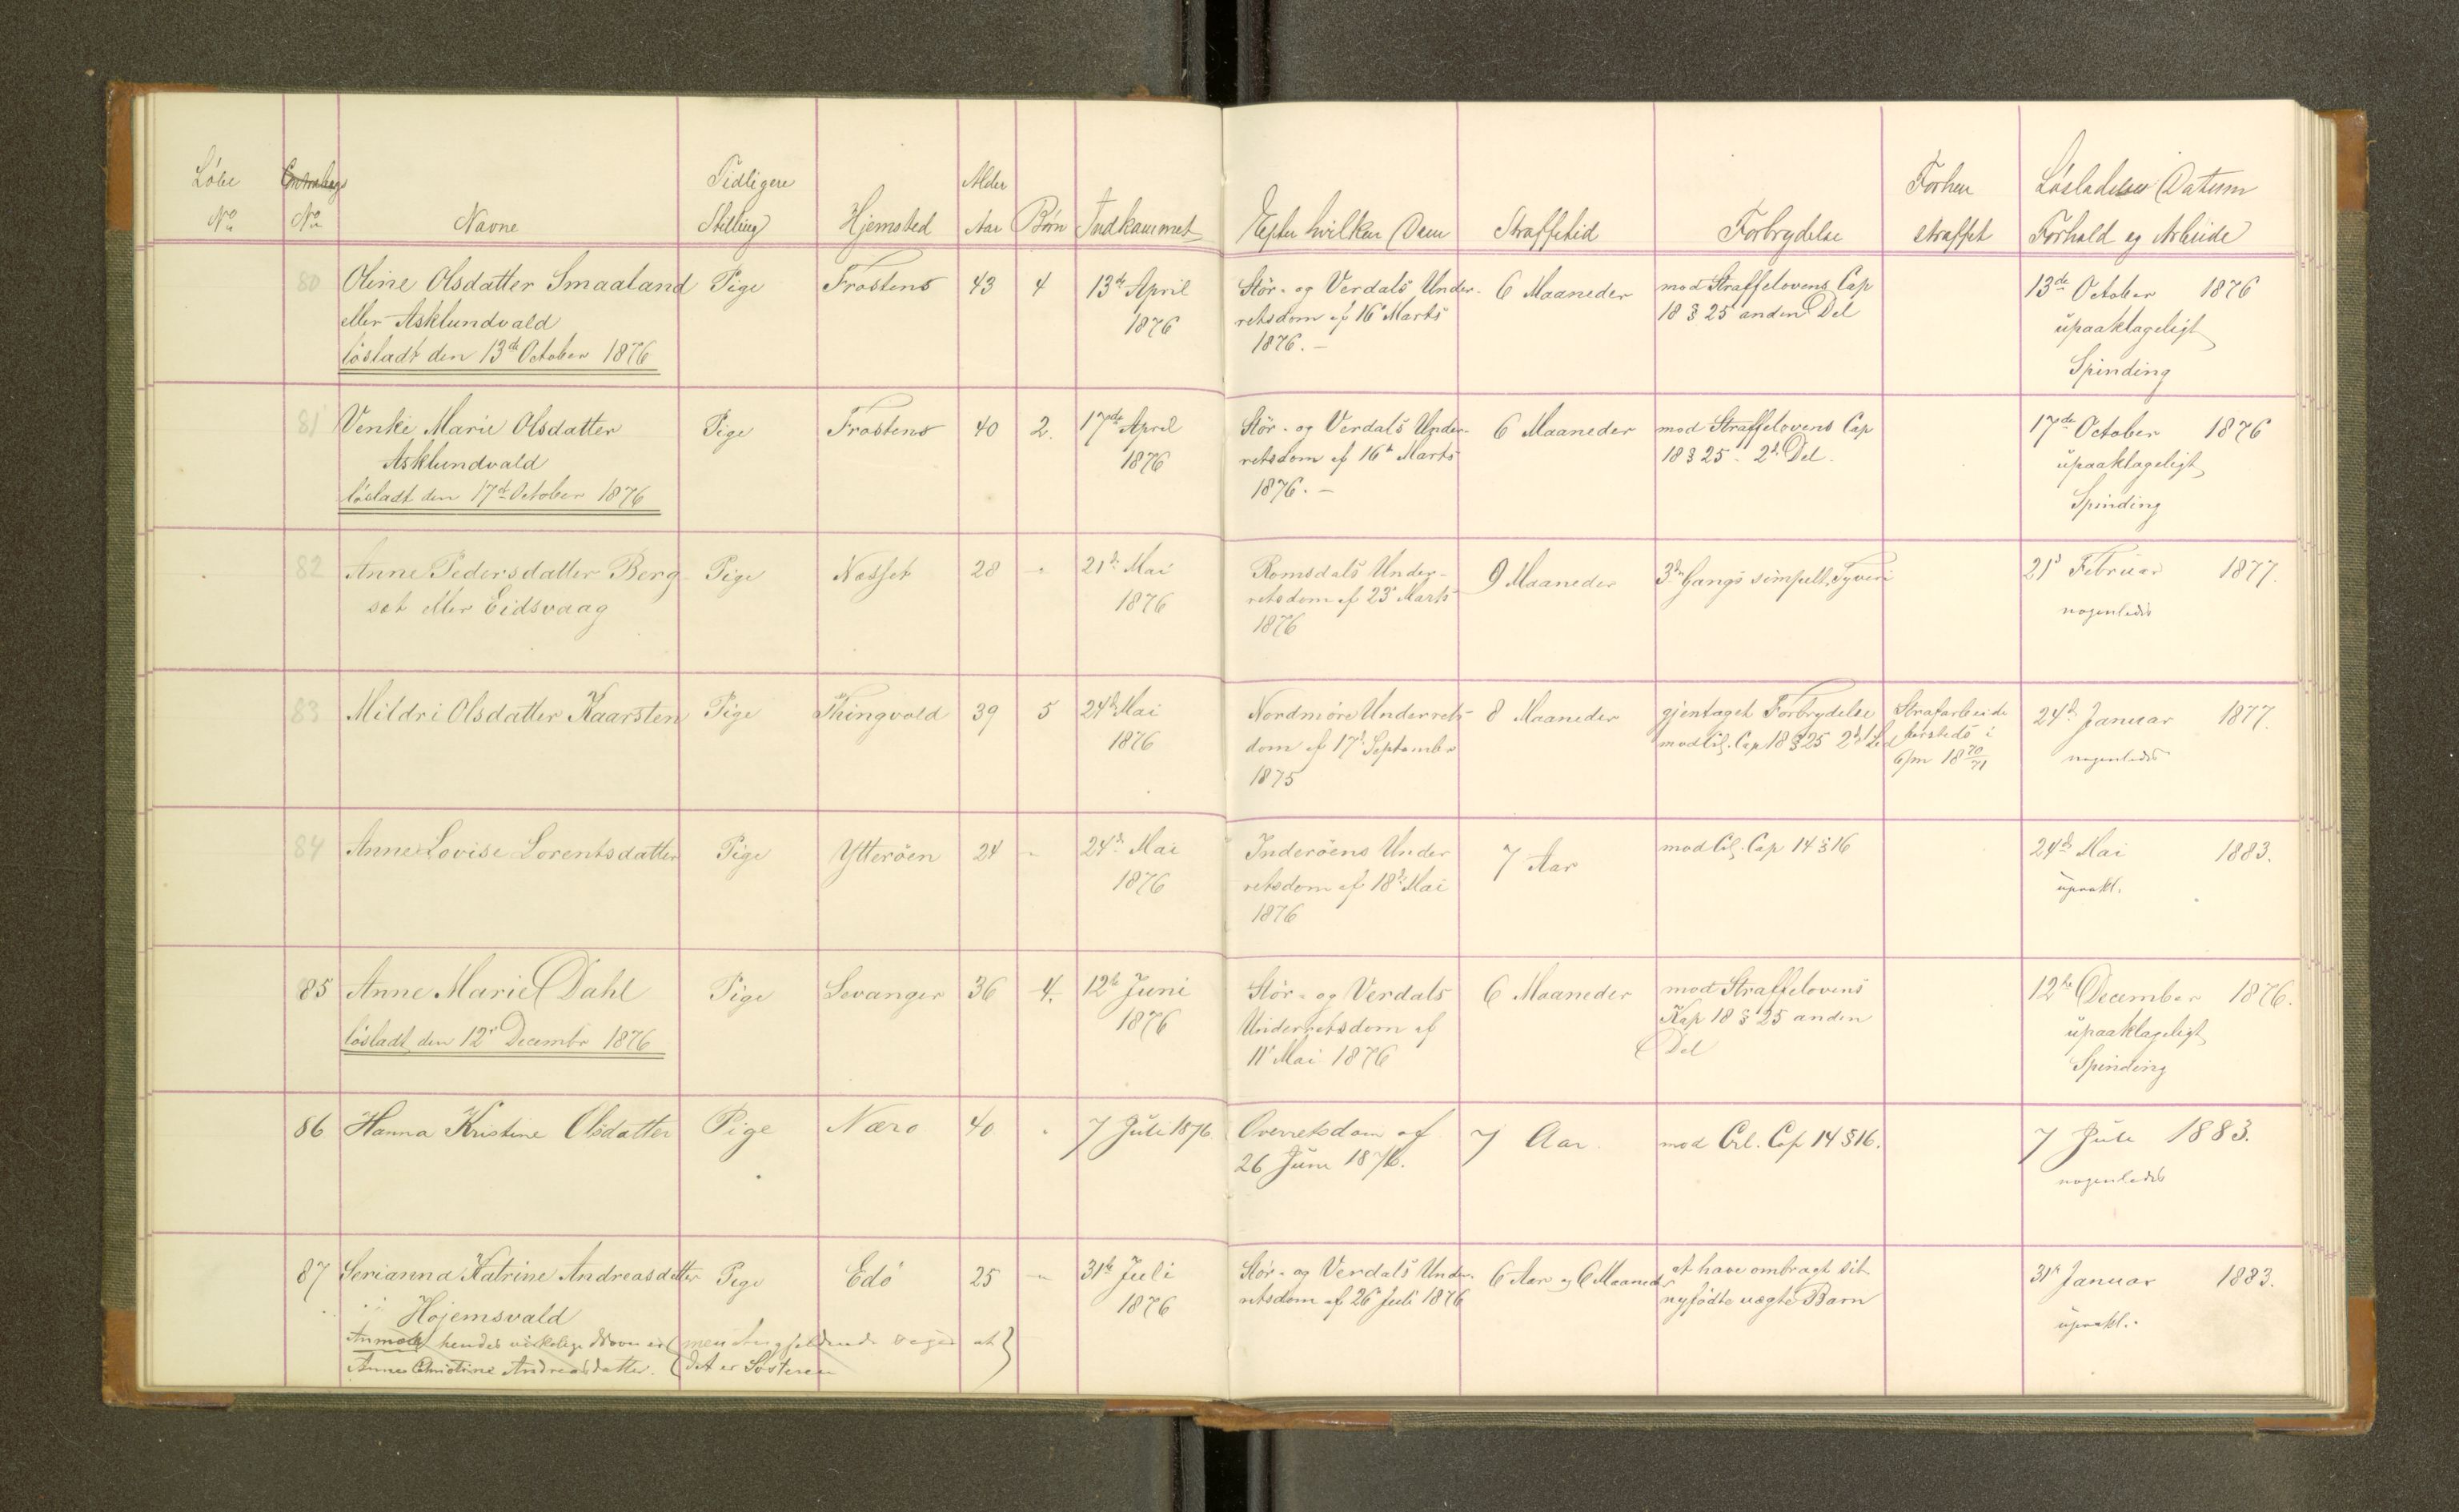 Løbe
No
No
Navne
Tidligere
Stilling
Hjemsted
Alder
Aar
Børn
Indkommet
Efter hvilken Dom
Straffetid
Forbrydelse
Forhen
straffet
Løsladelses Datum
Forhold og Arbeide
80
Oline Olsdatter Smaaland
eller Asklundvald
løsladt den 13de October 1876
Pige
Frostens
43
4
13de April
1876
Stør- og Verdals Under-
retsdom af 16 Marts
1876. –
6 Maaneder
mod Straffelovens Cap
18 § 25 anden Del
13de October 1876
upaaklageligt
Spinding
81
Venke Marie Olsdatter
Asklundvald
løsladt den 17de October 1876
Pige
Frostens
40
2.
17de April
1876
Stør- og Verdals Under-
retsdom af 16de Marts
1876. –
6 Maaneder
mod Straffelovens Cap
18 § 25 - 2d Del.
17de October 1876
upaaklageligt
Spinding
82
Anne Pedersdatter Berg-
set eller Eidsvaag
Pige
Nosset
28
-
21de Mai
1876
Romsdals Under-
retsdom af 23 Marts
1876
9 Maaneder
3die Gangs simpelt Tyveri
21d Februar 1877.
nogenledes
83
Mildri Olsdatter Kaarsten
Pige
Thingvold
39
5
24de Mai
1876
Nordmøre Underrets-
dom af 17de September
1875
8 Maaneder
gjentaget Forbrydelse
mod Crl. Cap 18 § 25 2det Led
Strafarbeide
hersteds i
6/m 18 70/71
24de Januar 1877.
nogenledes
84
Anne Lovise Lorentsdatter
Pige
Ytterøen
24
-
24de Mai
1876
Inderøens Under
retsdom af 18de Mai
1876
7 Aar
mod Crl. Cap 14 § 16
24de Mai 1883.
upaakl.
85
Anne Marie Dahl
løsladt den 12te Decembr 1876
Pige
Levanger
36
4.
12te Juni
1876
Stør- og Verdals
Underretsdom af
11te Mai 1876
6 Maaneder
mod Straffelovens
Kap 18 § 25 anden
Del
12te December 1876.
upaaklageligt
Spinding
86
Hanna Kristine Olsdatter
Pige
Nærø
40
-
7 Juli 1876
Overretsdom af
26 Juni 1876.
7 Aar
mod Crl. Cap 14 § 16.
7 Juli 1883.
nogenledes
87
Serianna Katrine Andreasdatter
Hojemsvald
Anmærk hendes virkelige Navn er (men Angjældende siger at)
Anne Christine Andreasdatter. (det er Søsteren
Pige
Edø
25
-
31te Juli
1876
Stør- og Verdals Under-
retsdom af 26 Juli 1876
6 Aar og 6 Maaneder
at have ombragt sit
nyfødte uægte Barn
31te Januar 1883.
upaakl.